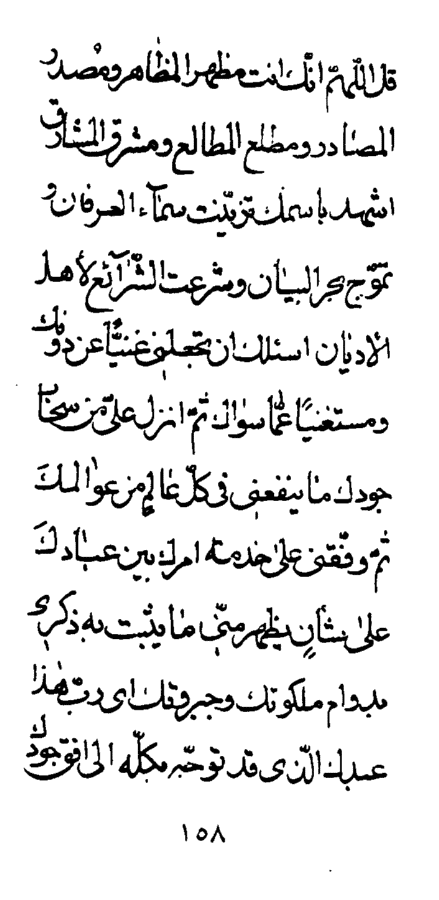 قل اللّهمّ انّک انت مظهر المظاهر و مصدر
المصادر و مطلع المطالع و مشرق المشارق
اشهد باسمک تزیّنت سمآء العرفان و
تموّج بحر البیان و شرعت الشّرآئع لأهل
الادیان اسئلک ان تجعلنی غنیًّا عن دونک
و مستغنیًا عمّا سواک ثمّ انزل علیّ من سحاب
جودک ما ینفعنی فی کلّ عالمٍ من عوالمک
ثمّ وفّقنی علی خدمة امرک بین عبادک
علی شأنٍ یظهر منّی ما یثبت به ذکری
بدوام ملکوتک و جبروتک ای ربّ هذا
عبدک الّذی قد توجّه بکلّه الی افق جودک
١٥٨